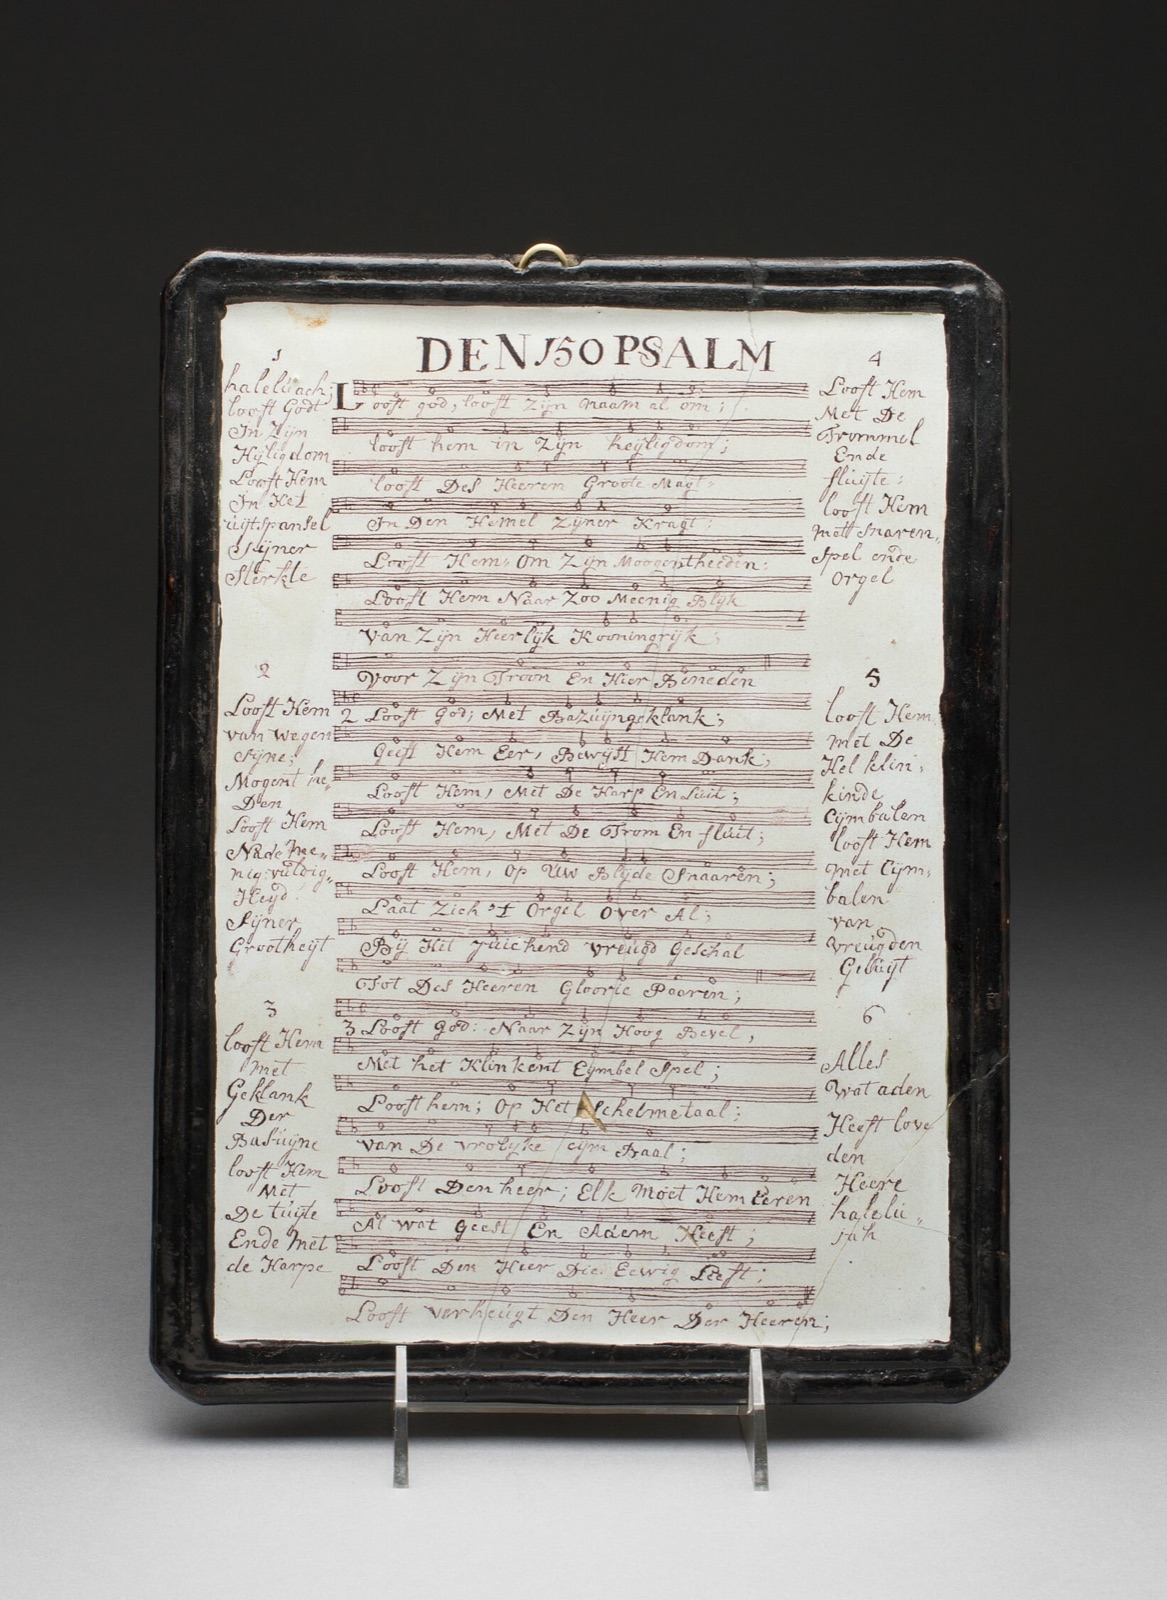 DEN 150 PSALM
1
halelüach;
looft Godt
In Zijn
Hÿligdom
Looft Hem
In Het
uijtspansel
Sijner
Sterkte
2
Looft Hem
van wegen
sijne;
Mogent he„
Den
Looft Hem
Na de me„
nig vuldig„
Heyd
Sijner
Grootheijt
3
looft Hem
met
Geklank
Der
Basuijne
looft Hem
Met
De Luijte
Ende Met
de Harpe
Looft god, looft Zijn naam al om;
looft hem in Zijn heijligdom;
looft Des Heeren Groote Magt
In Den Hemel Zijner Kragt;
Looft Hem, Om Zijn Moogentheeden:
Looft Hem Naar Zoo Meenig Blijk
Van Zijn Heerlijk Kooningrijk;
Voor Zijn Troon En Hier Beneden
2 Looft God; Met Bazuijngeklank;
Geeft Hem Eer, Bewijst Hem Dank;
Looft Hem, Met De Harp En Luit;
Looft Hem, Met De Trom En fluit;
Looft Hem, Op Uw Blijde Snaaren;
Laat Zich 't Orgel Over Al;
Bij Het Juichend vreugd Geschal
Tot Des Heeren Gloorie Paaren;
3 Looft God: Naar Zijn Hoog Bevel,
Met het Klinkent Cymbel Spel;
Looft hem; Op Het Schelmetaal;
Van De vrolijke Cym Baal;
Looft Den heer; Elk Moet Hem Eeren
Al wat Geest En Adem Heeft;
Looft Den Heer Die Eewig Leeft;
Looft verheugt Den Heer Der Heeren;
4
Looft Hem
Met De
Trommel
Ende
fluijte:
looft Hem
met snaren„
Spel ende
Orgel
5
looft Hem
met De
Hel klin„
kinde
Cijmbalen
looft Hem
met Cijm„
balen
van
vreugden
Gelüijt
6
Alles
Wat aden
Heeft love
den
Heere
halelü„
jah